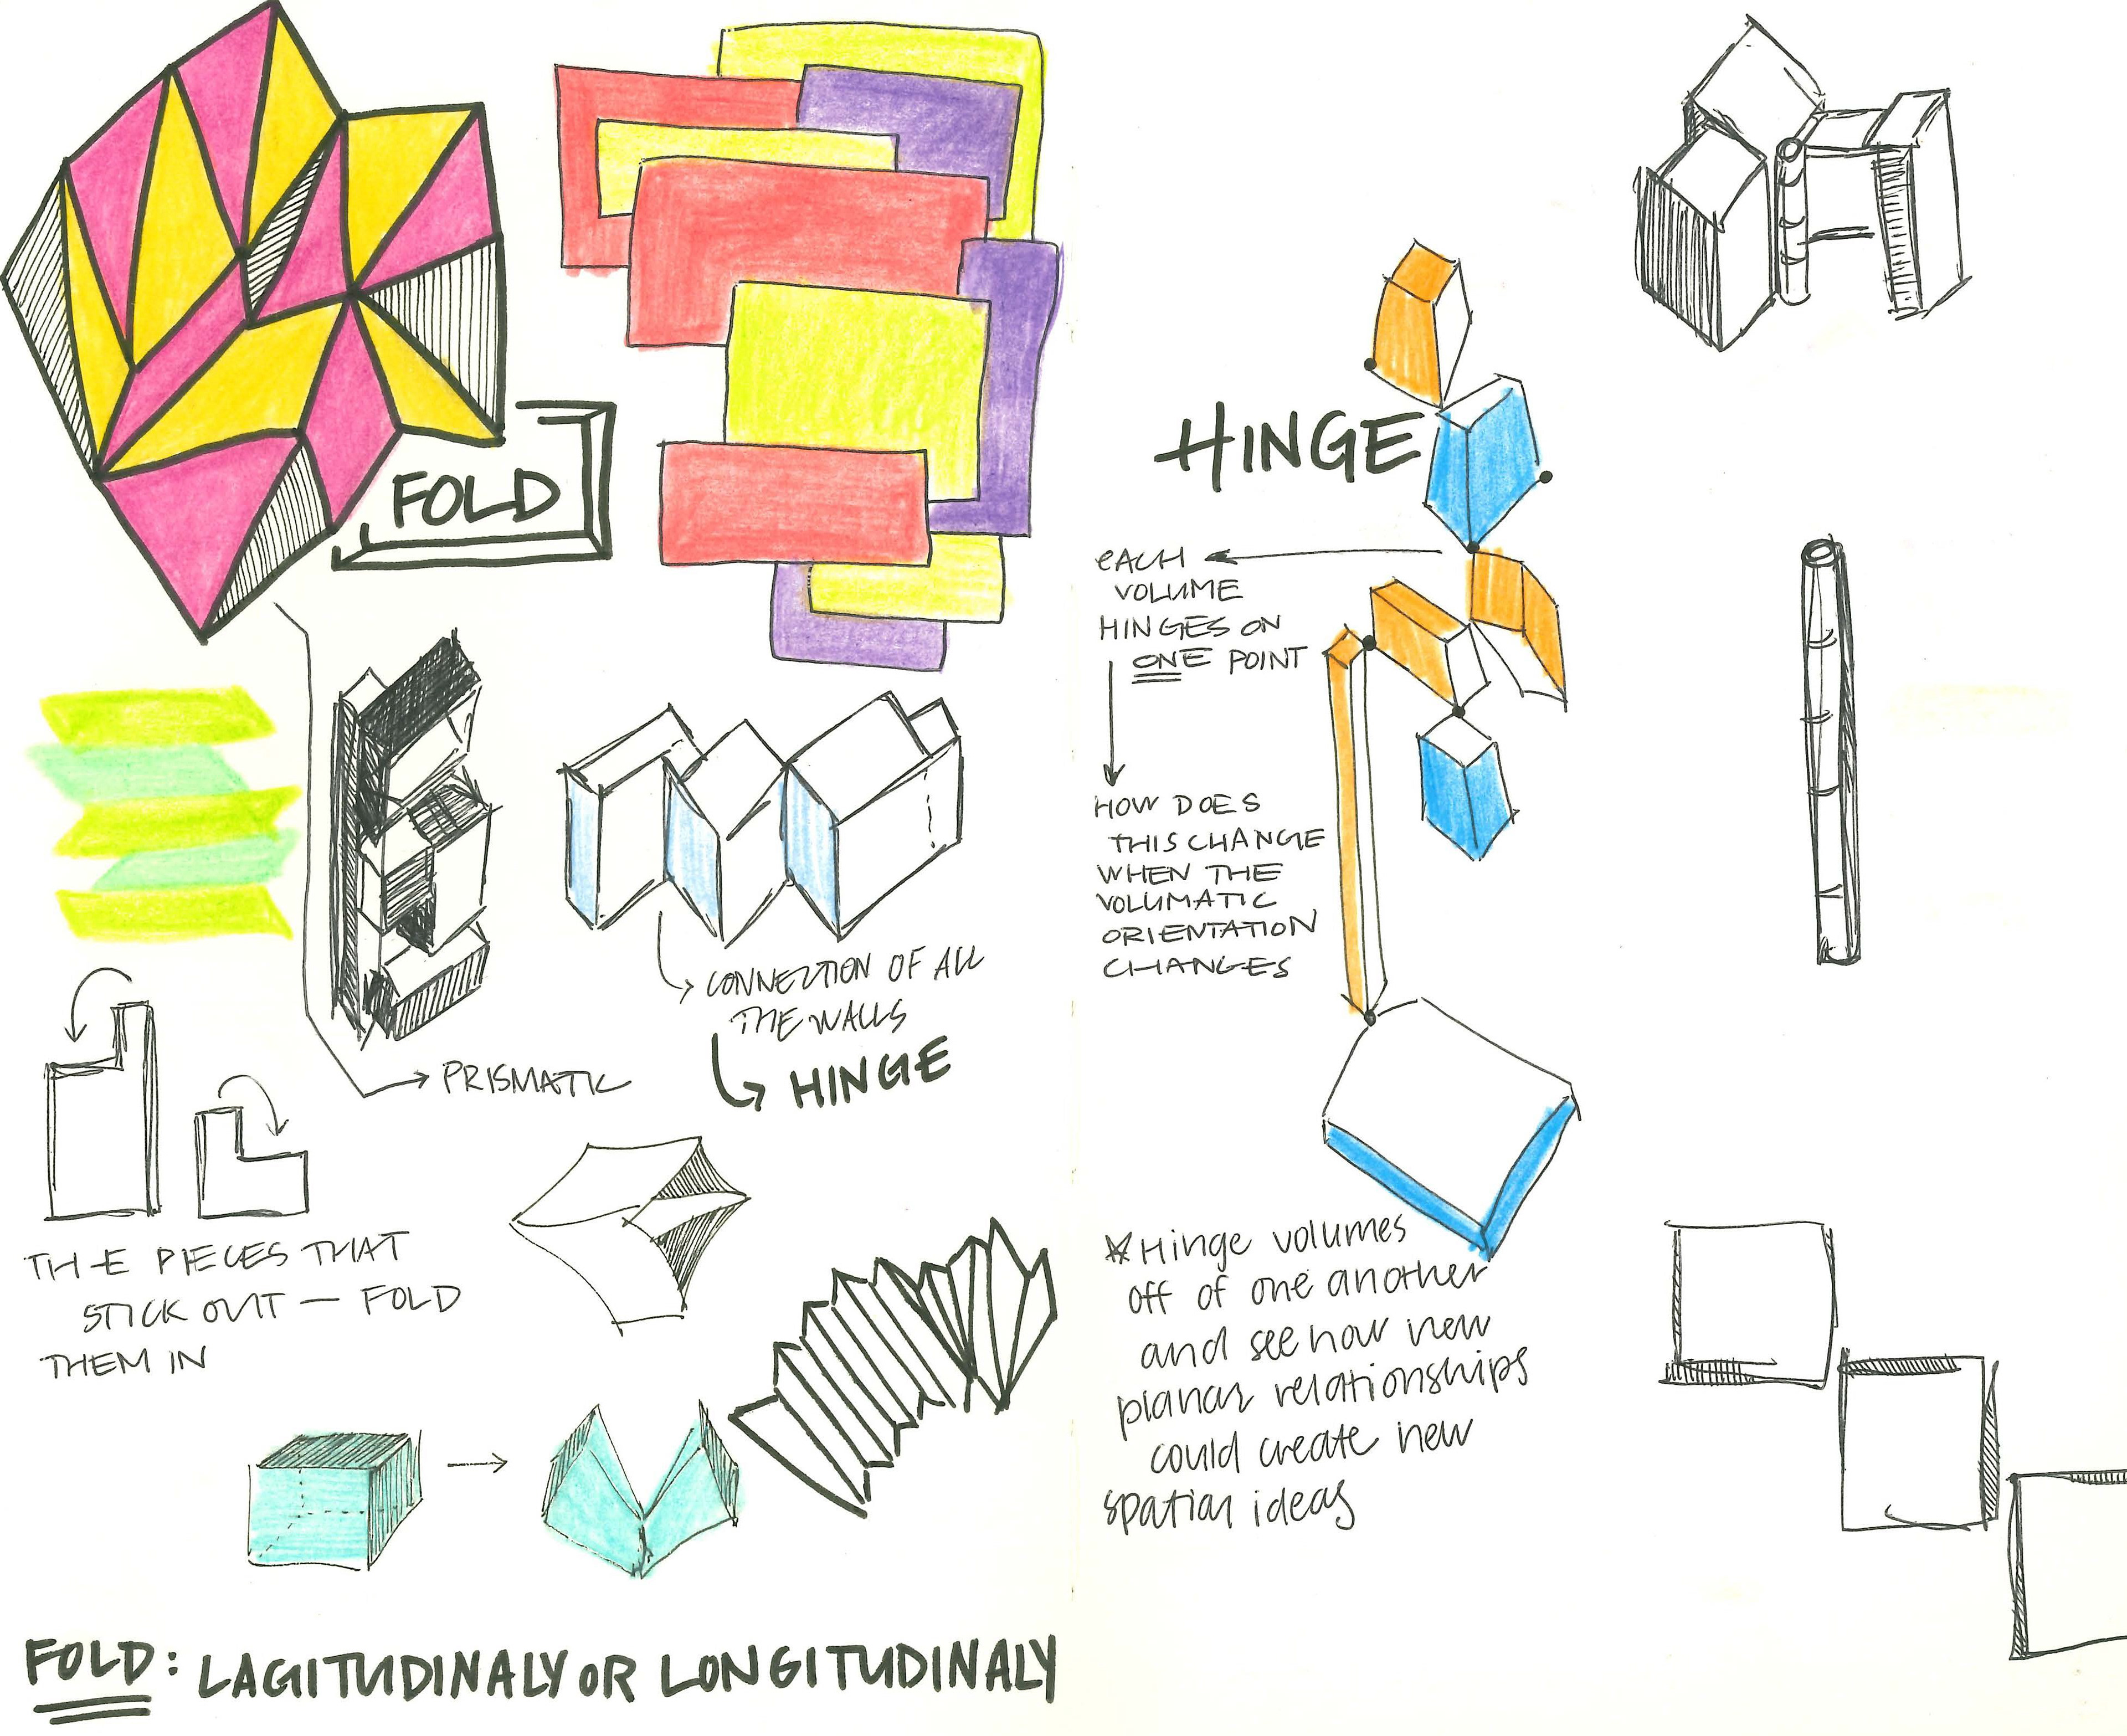 FOLD
PRISMATIC
CONNECTION OF ALL
THE WALLS
HINGE
THE PIECES THAT
STICK OUT — FOLD
THEM IN
FOLD: LAGITUDINALY OR LONGITUDINALY
HINGE
EACH
VOLUME
HINGES ON
ONE POINT
HOW DOES
THIS CHANGE
WHEN THE
VOLUMATIC
ORIENTATION
CHANGES
*Hinge volumes
off of one another
and see how new
planar relationships
could create new
spatial ideas